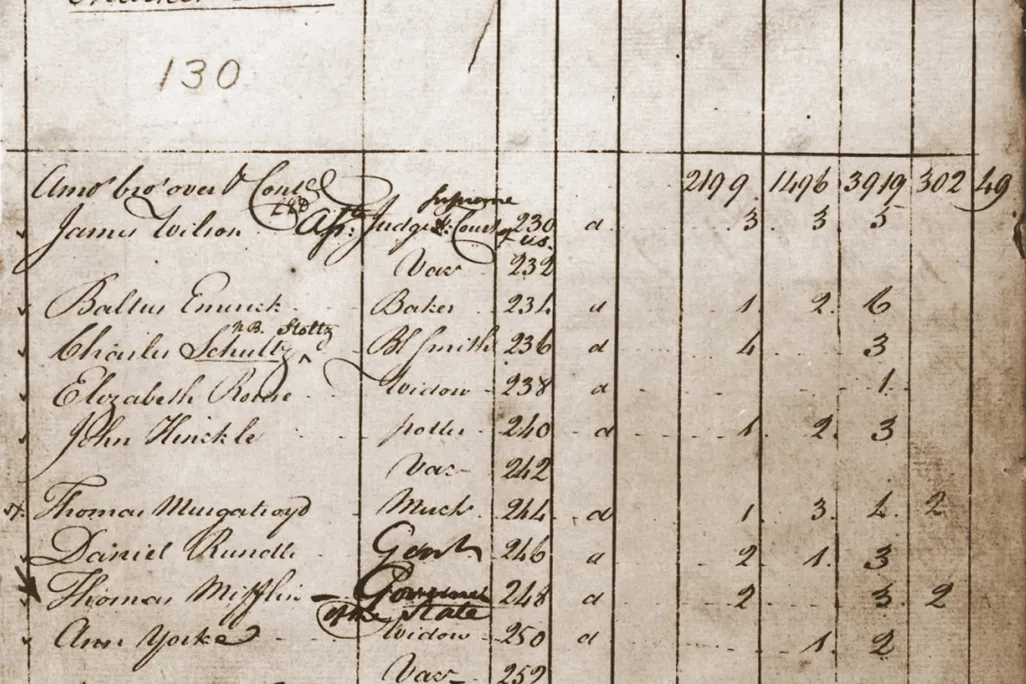 130
Amo.t bro.t over & Cont.d 2199 1496 3919 302 49
Supreme
James Wilson Ass.t Judge Court 230 a 3 3 5
of us.
Vac 232
Baltus Emrick Baker 234 a 1 2 6
n.B. Stoltz
Charles Schultz ^ Bl Smith 236 a 4 3
Elizabeth Rome Widow 238 a 1
John Hinckle potter 240 a 1 2 3
Vac 242
Thomas Murgatroyd Mercht 244 a 1 3 4 2
Daniel Rundle Gent 246 a 2 1 3
Thomas Mifflin Governor 248 a 2 3 2
of the State
Ann Yorke Widow 250 a 1 2
Vac 252